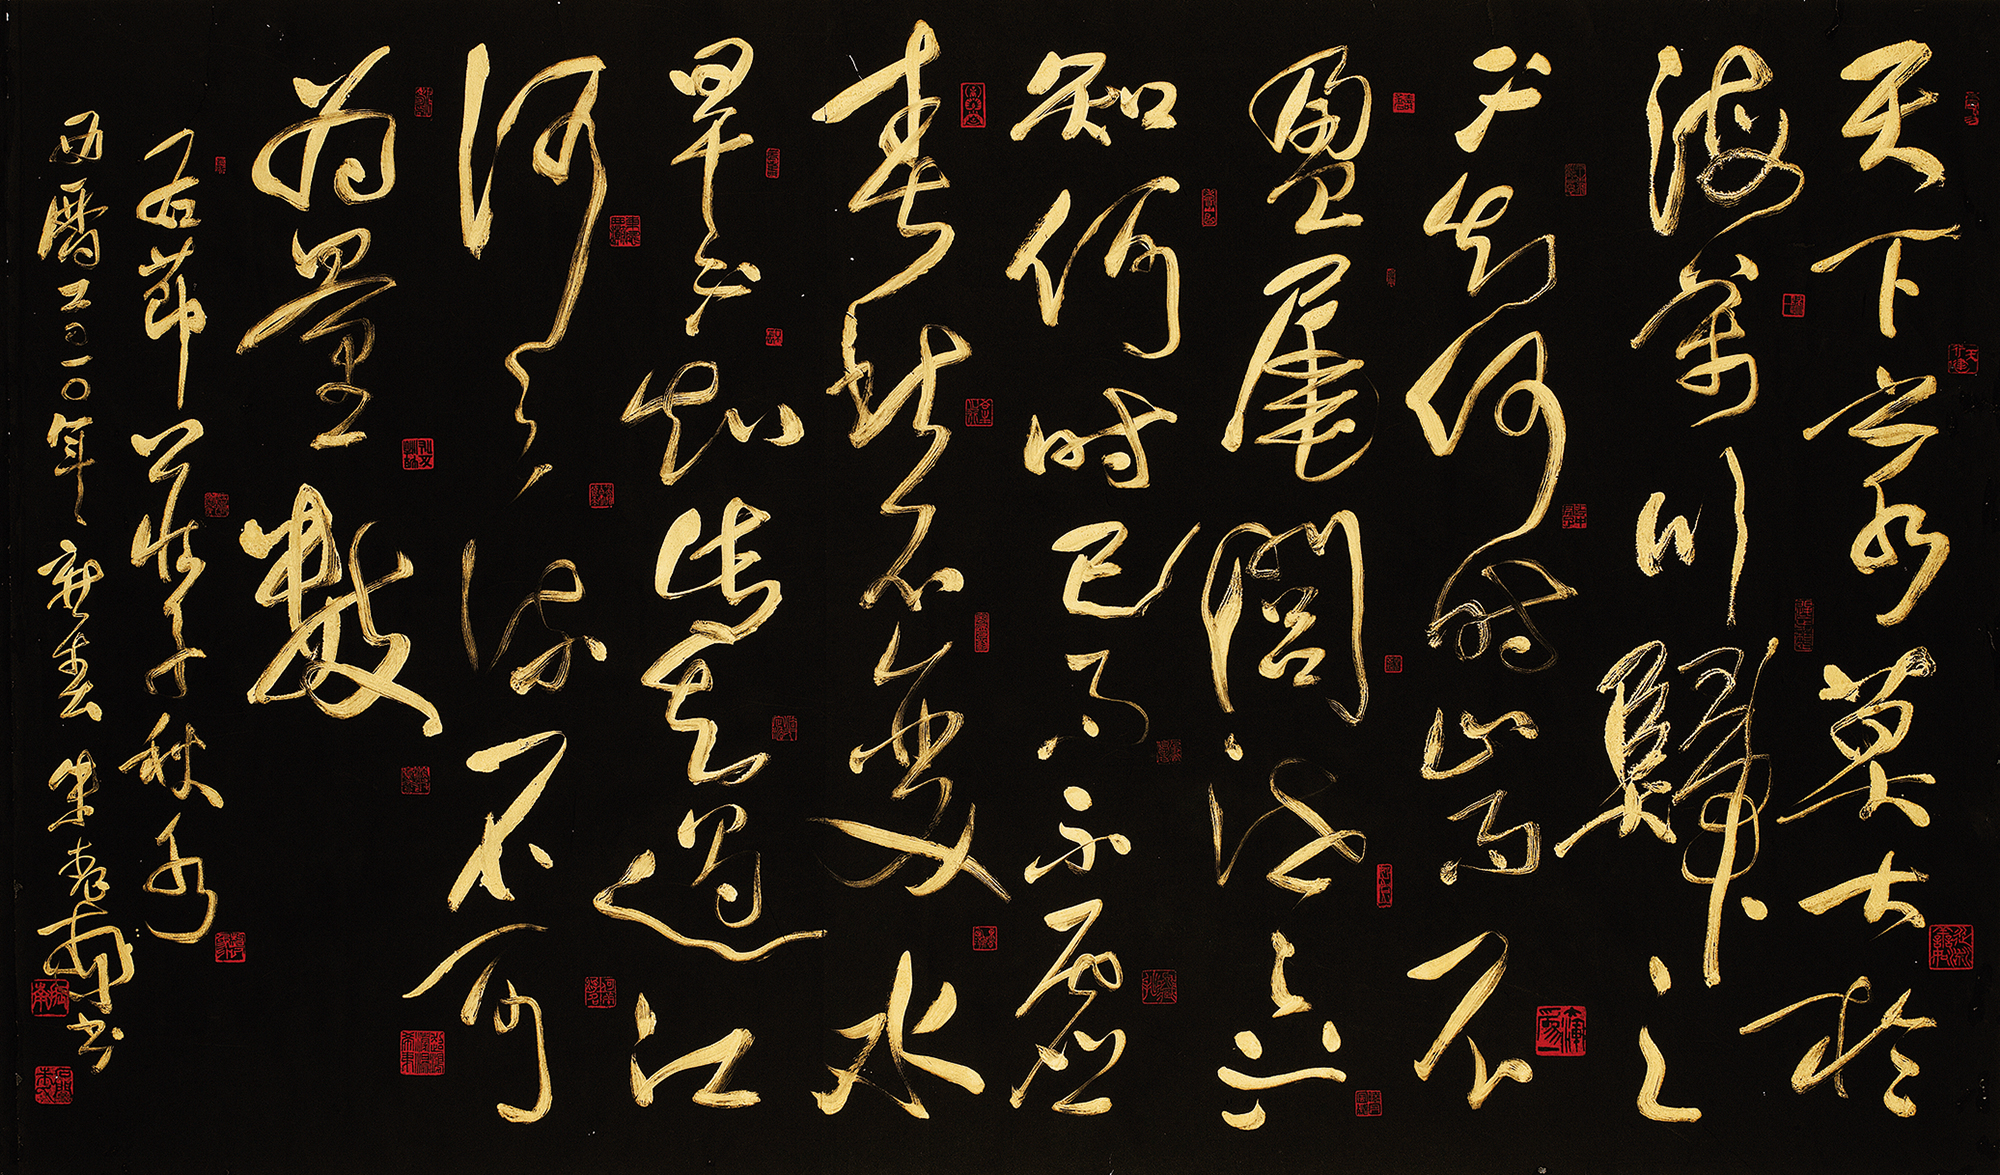 天下之水莫大於
海萬川歸之
不知何时止而不
盈尾閭泄之不
知何时已而不虛
春秋不變水
旱不知此其過江
河之流不可
為量數
右節莊子秋水
西曆二〇一〇年春朱书